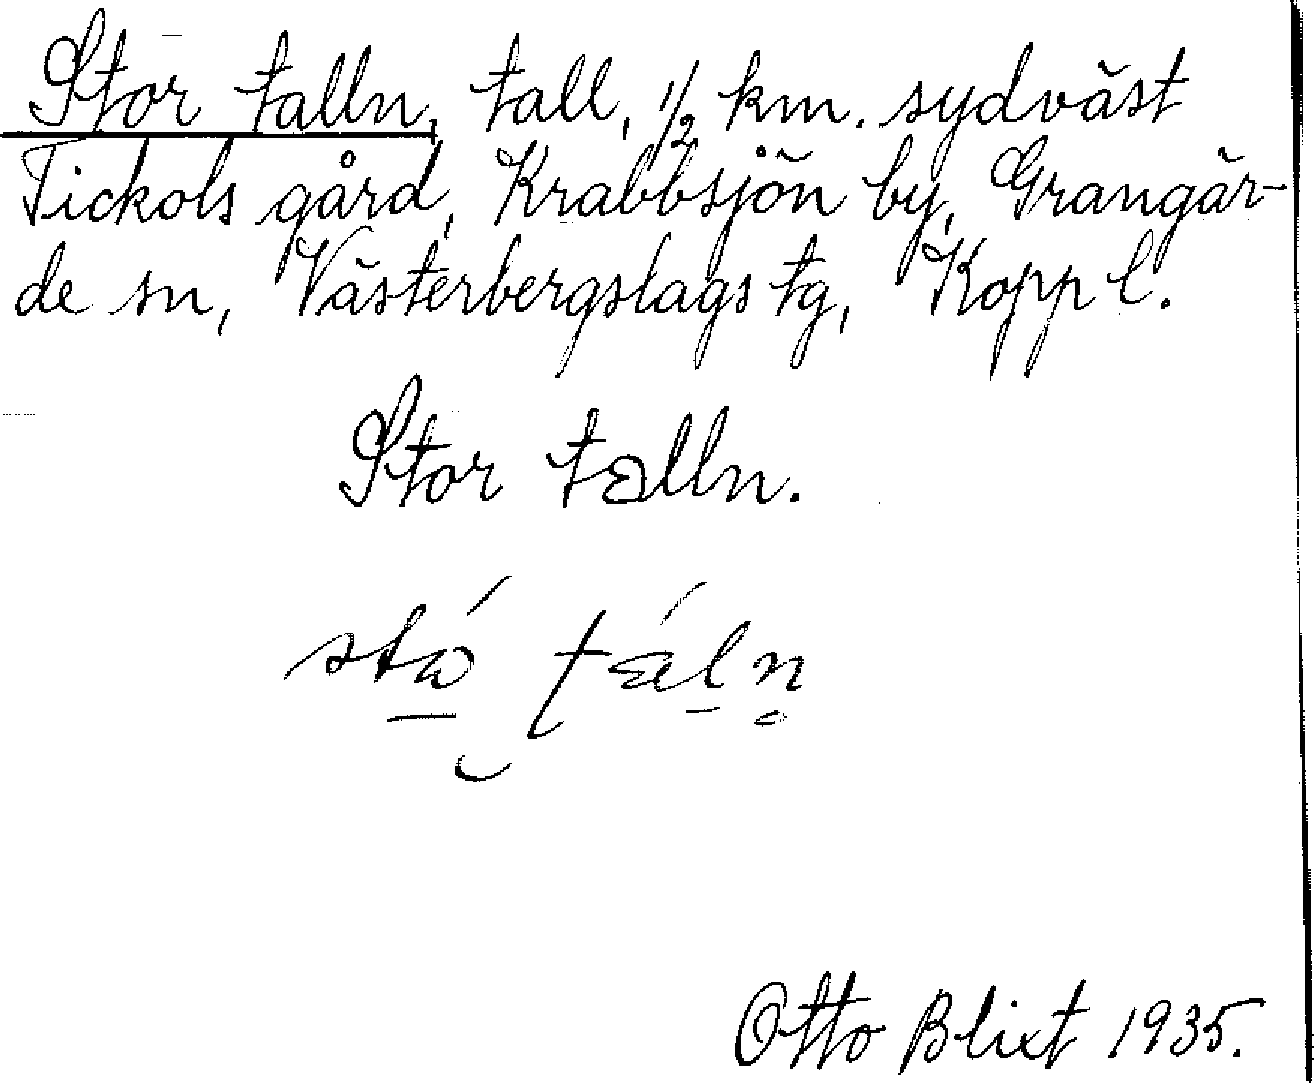 Stor talln, tall, 1/2 km. sydväst
Tickols gård, Krabbsjön by, Grangär-
de sn, Västerbergslags tg, Kopp l.
Stor talln.
Otto Blixt 1935.